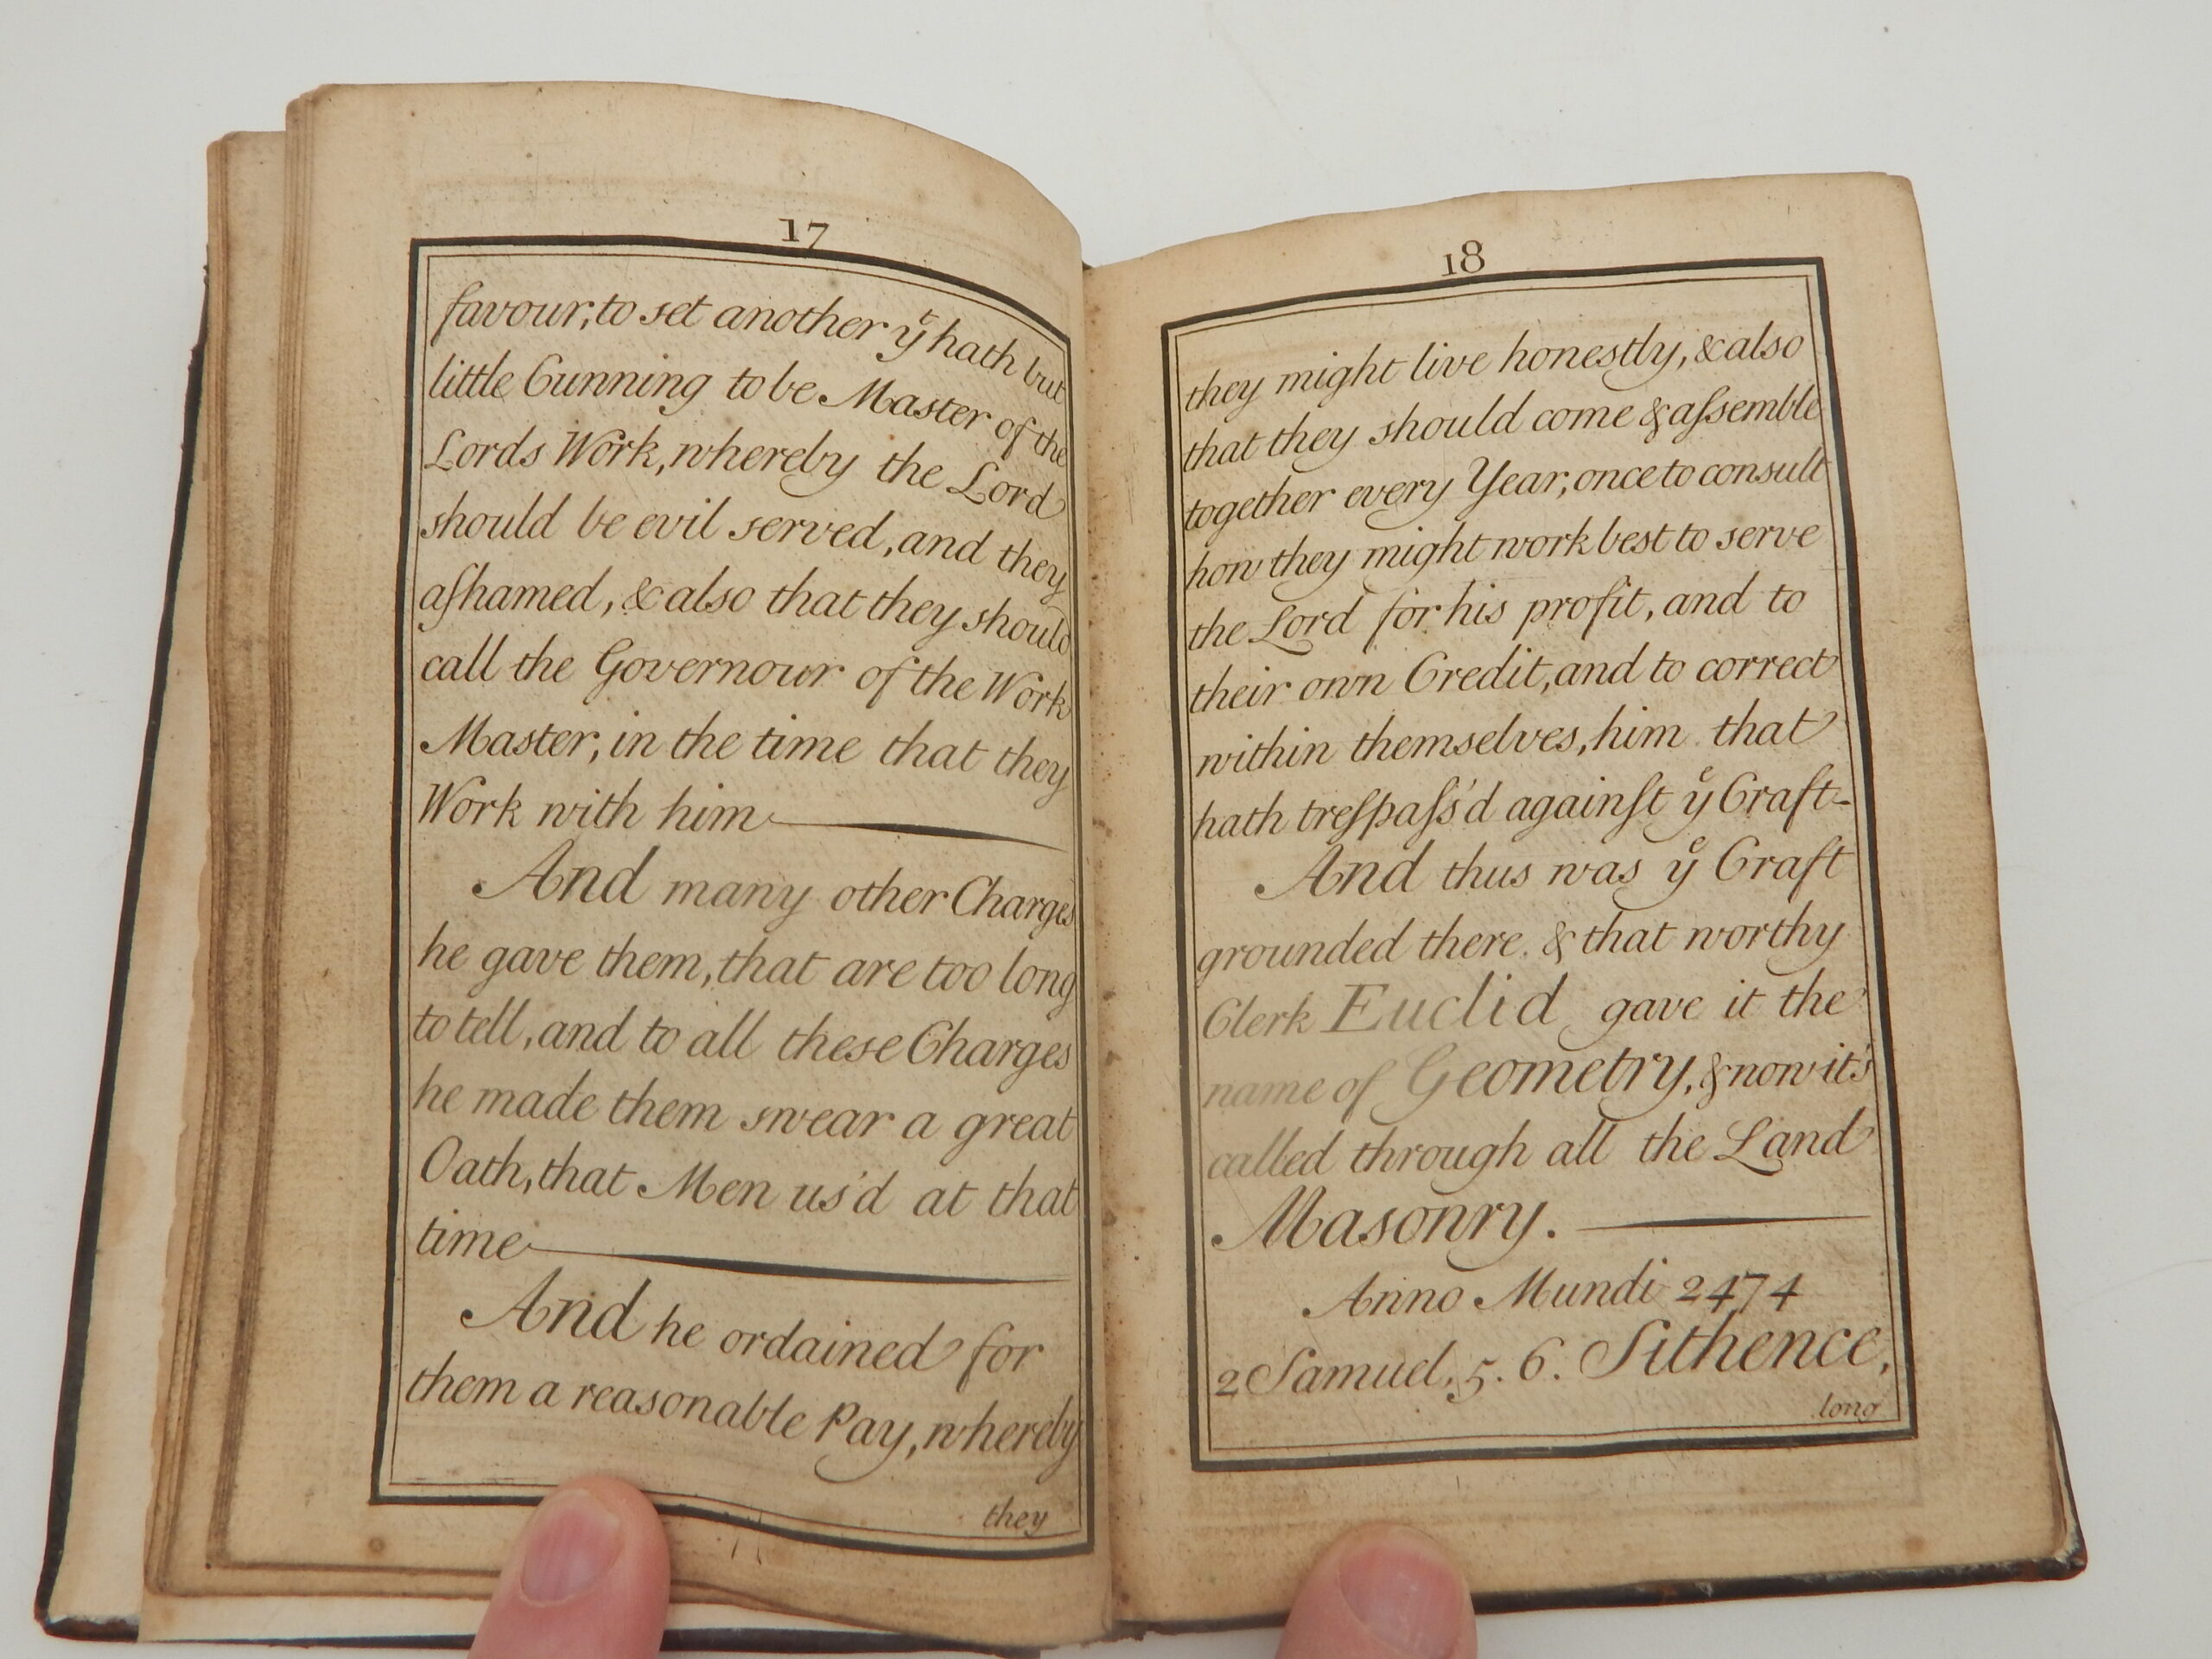 17
favour, to set another yᵗ hath but
little Cunning to be Master of the
Lords Work, whereby the Lord
should be evil served, and they
aſhamed, & also that they should
call the Governour of the Work
Master, in the time that they
Work with him
And many other Charges
he gave them, that are too long
to tell, and to all these Charges
he made them swear a great
Oath, that Men us'd at that
time
And he ordained for
them a reasonable Pay, whereby
they
18
they might live honestly, & also
that they should come & aſsemble
together every Year, once to consult
how they might work best to serve
the Lord for his profit, and to
their own Credit, and to correct
within themselves, him that
hath treſpaſs'd againſt yᵉ Craft-
And thus was yᵉ Craft
grounded there. & that worthy
Clerk Euclid gave it the
name of Geometry, & now it's
called through all the Land
Masonry.
Anno Mundi 2474
2 Samuel, 5. 6. Sithence,
long